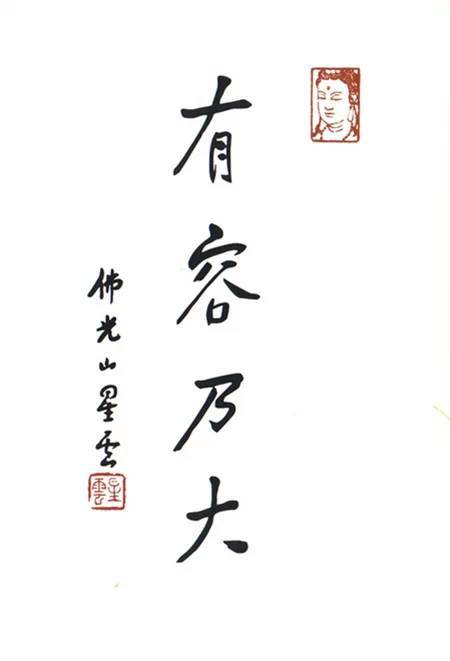 有容乃大
佛光山星雲
星雲